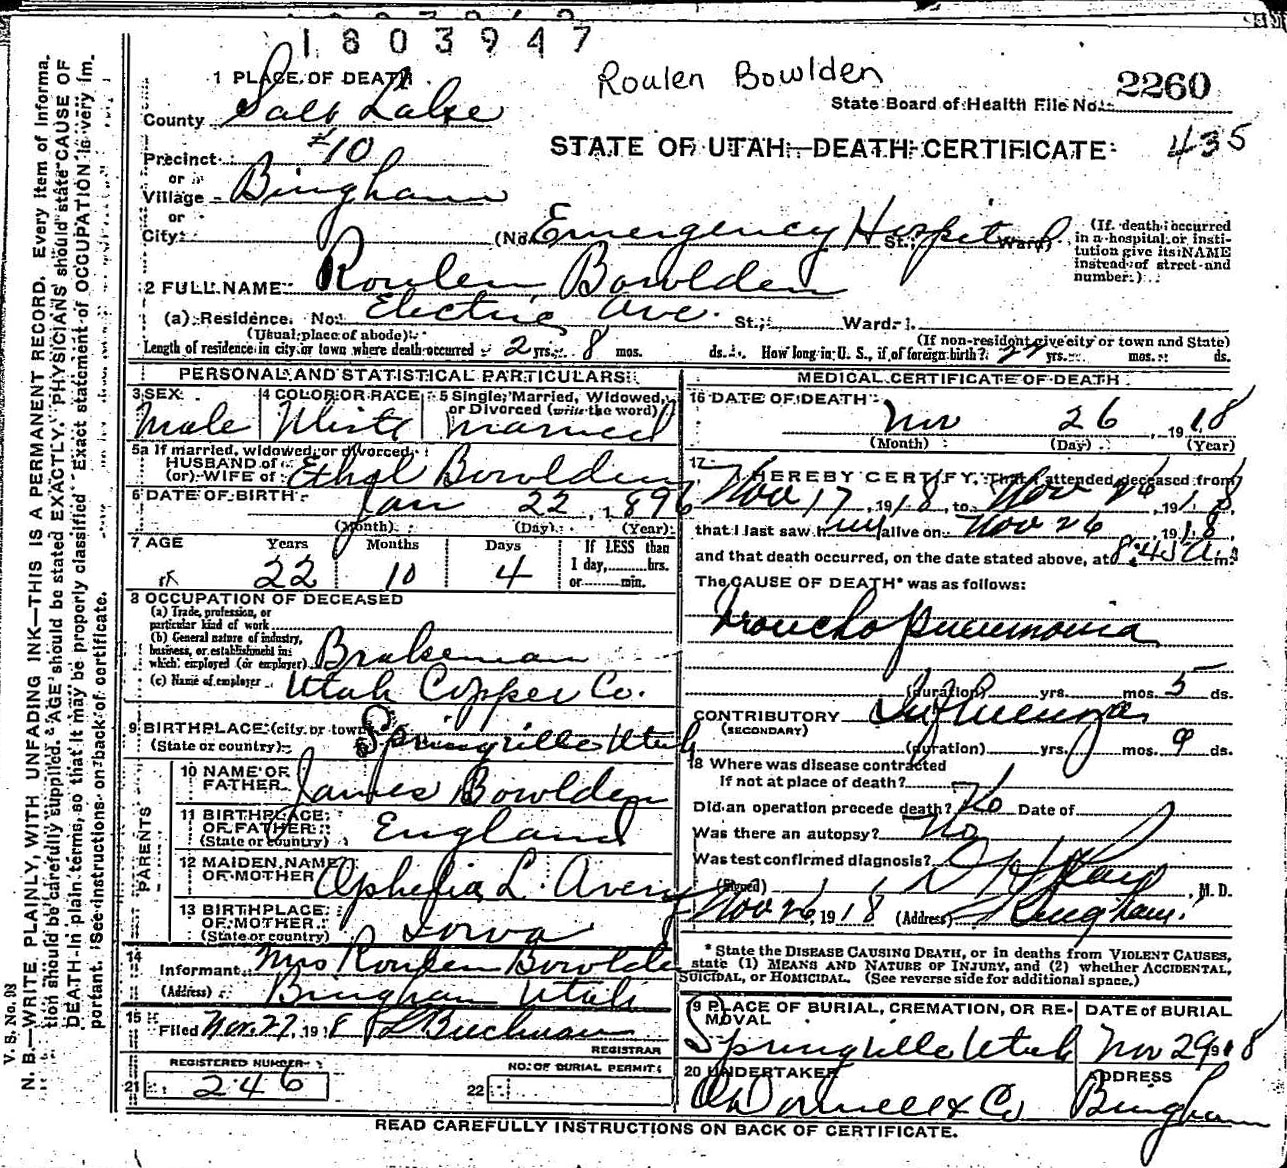 1803947
Roulen Bowlden
2260
State Board of Health File No.
435
STATE OF UTAH—DEATH CERTIFICATE
1 PLACE OF DEATH
County Salt Lake
Precinct #10
or
Village Bingham
or
City
(No. Emergency Hospital St.; Ward)
(If death occurred in a hospital or institution give its NAME instead of street and number.)
2 FULL NAME Roulen Bowlden
(a) Residence. No. Electric Ave. St.; Ward.
(Usual place of abode) (If non-resident give city or town and State)
Length of residence in city or town where death occurred 2 yrs. 8 mos. ds. How long in U. S., if of foreign birth? 22 yrs. mos. ds.
PERSONAL AND STATISTICAL PARTICULARS
3 SEX Male
4 COLOR OR RACE White
5 Single, Married, Widowed, or Divorced (write the word) Married
5a If married, widowed, or divorced
HUSBAND of
(or) WIFE of Ethel Bowlden
6 DATE OF BIRTH Jan 22, 1896
(Month) (Day) (Year)
7 AGE Years 22 Months 10 Days 4 If LESS than 1 day, hrs. or min.
8 OCCUPATION OF DECEASED
(a) Trade, profession, or particular kind of work
(b) General nature of industry, business, or establishment in which employed (or employer) Brakeman
(c) Name of employer Utah Copper Co.
9 BIRTHPLACE (city or town) Springville Utah
(State or country)
PARENTS
10 NAME OF FATHER James Bowlden
11 BIRTHPLACE OF FATHER (State or country) England
12 MAIDEN NAME OF MOTHER Ophelia L. Avery
13 BIRTHPLACE OF MOTHER (State or country) Iowa
14 Informant Mrs Roulen Bowlden
(Address) Bingham Utah
15 Filed Nov. 27, 1918
REGISTRAR
REGISTERED NUMBER
21 246
NO. OF BURIAL PERMIT
22
MEDICAL CERTIFICATE OF DEATH
16 DATE OF DEATH Nov 26, 1918
(Month) (Day) (Year)
17 I HEREBY CERTIFY, That I attended deceased from
Nov 17, 1918, to Nov 26, 1918,
that I last saw him alive on Nov 26, 1918,
and that death occurred, on the date stated above, at 8:45 a.m.
The CAUSE OF DEATH* was as follows:
Broncho pneumonia
(duration) yrs. mos. 5 ds.
CONTRIBUTORY Influenza
(SECONDARY)
(duration) yrs. mos. 9 ds.
18 Where was disease contracted
If not at place of death?
Did an operation precede death? No Date of
Was there an autopsy? No
Was test confirmed diagnosis?
(Signed) M. D.
Nov 26, 1918 (Address) Bingham.
* State the DISEASE CAUSING DEATH, or in deaths from VIOLENT CAUSES, state (1) MEANS AND NATURE OF INJURY, and (2) whether ACCIDENTAL, SUICIDAL, OR HOMICIDAL. (See reverse side for additional space.)
19 PLACE OF BURIAL, CREMATION, OR REMOVAL Springville Utah
DATE of BURIAL Nov 29 1918
20 UNDERTAKER O'Donnell & Co
ADDRESS Bingham
READ CAREFULLY INSTRUCTIONS ON BACK OF CERTIFICATE.
V. S. No. 98
N. B.—WRITE PLAINLY, WITH UNFADING INK—THIS IS A PERMANENT RECORD. Every item of information should be carefully supplied. AGE should be stated EXACTLY. PHYSICIANS should state CAUSE OF DEATH in plain terms, so that it may be properly classified. Exact statement of OCCUPATION is very important. See instructions on back of certificate.